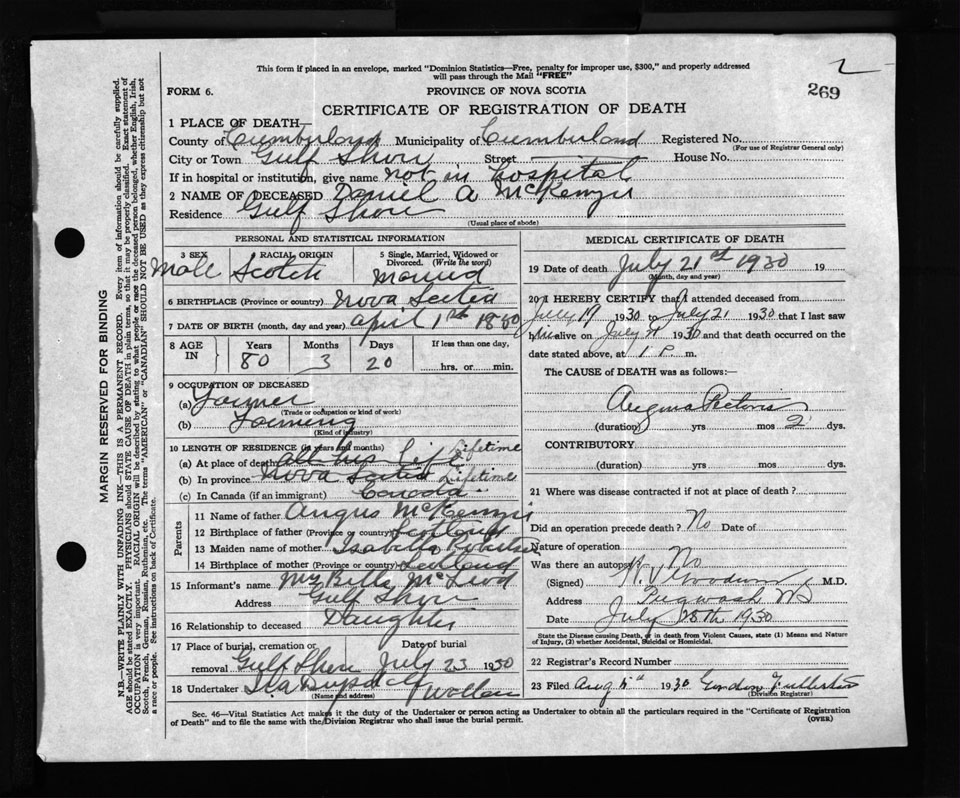 2
This form if placed in an envelope, marked "Dominion Statistics—Free, penalty for improper use, $300," and properly addressed
will pass through the Mail "FREE"
FORM 6.
PROVINCE OF NOVA SCOTIA
269
CERTIFICATE OF REGISTRATION OF DEATH
1 PLACE OF DEATH—
County of Cumberland Municipality of Cumberland Registered No.
(For use of Registrar General only)
City or Town Gulf Shore Street House No.
If in hospital or institution, give name not in hospital
2 NAME OF DECEASED Daniel A McKenzie
Residence Gulf Shore
(Usual place of abode)
PERSONAL AND STATISTICAL INFORMATION
3 SEX RACIAL ORIGIN 5 Single, Married, Widowed or
Divorced. (Write the word)
Male Scotch Married
6 BIRTHPLACE (Province or country) Nova Scotia
7 DATE OF BIRTH (month, day and year) April 1st 1850
8 AGE IN Years Months Days If less than one day,
80 3 20 hrs. or min.
9 OCCUPATION OF DECEASED
(a) Farmer
(Trade or occupation or kind of work)
(b) Farming
(Kind of industry)
10 LENGTH OF RESIDENCE (in years and months)
(a) At place of death all his life Lifetime
(b) In province Nova Scotia Lifetime
(c) In Canada (if an immigrant) Canada
Parents
11 Name of father Angus McKenzie
12 Birthplace of father (Province or country) Scotland
13 Maiden name of mother Isabella Robertson
14 Birthplace of mother (Province or country) Scotland
15 Informant's name Mrs Bella McLeod
Address Gulf Shore
16 Relationship to deceased Daughter
17 Place of burial, cremation or removal Date of burial
Gulf Shore July 23 1930
18 Undertaker Ira Drysdale Wallace
(Name and address)
MEDICAL CERTIFICATE OF DEATH
19 Date of death July 21st 1930 19
(Month, day and year)
20 I HEREBY CERTIFY that I attended deceased from
July 19 1930 to July 21 1930 that I last saw
him alive on July 1930 and that death occurred on the
date stated above, at 1 P m.
The CAUSE of DEATH was as follows:—
Angina Pectoris
(duration) yrs mos 2 dys.
CONTRIBUTORY
(duration) yrs mos dys.
21 Where was disease contracted if not at place of death?
Did an operation precede death? No Date of
Nature of operation
Was there an autopsy? No
(Signed) M.D.
Address Pugwash NS
Date July 1930
State the Disease causing Death, or in death from Violent Causes, state (1) Means and Nature
of Injury, (2) whether Accidental, Suicidal or Homicidal.
22 Registrar's Record Number
23 Filed Aug 1930 Gordon Fullerton
(Division Registrar)
Sec. 46—Vital Statistics Act makes it the duty of the Undertaker or person acting as Undertaker to obtain all the particulars required in the "Certificate of Registration
of Death" and to file the same with the Division Registrar who shall issue the burial permit.
(OVER)
MARGIN RESERVED FOR BINDING
N.B.—WRITE PLAINLY WITH UNFADING INK—THIS IS A PERMANENT RECORD. Every item of information should be carefully supplied.
AGE should be stated EXACTLY. PHYSICIANS should STATE CAUSE OF DEATH in plain terms, so that it may be properly classified. Exact statement of
OCCUPATION is very important. RACIAL ORIGIN will be described by stating to what people or race the deceased person belonged, whether English, Irish,
Scotch, French, German, Russian, Ruthenian, etc. The terms "AMERICAN" or "CANADIAN" SHOULD NOT BE USED as they express citizenship but not
a race or people. See instructions on back of Certificate.